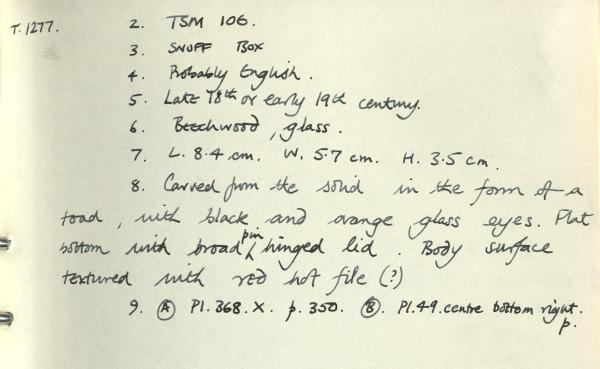 T.1277. 2. TSM 106.
3. SNUFF BOX
4. Probably English.
5. Late 18th or early 19th century.
6. Beechwood, glass.
7. L. 8.4 cm. W. 5.7 cm. H. 3.5 cm.
8. Carved from the solid in the form of a
toad, with black and orange glass eyes. Flat
bottom with broad pin hinged lid. Body surface
textured with red hot file (?)
9. Ⓐ Pl. 368. X. p. 350. Ⓑ. Pl. 49. centre bottom right.
p.